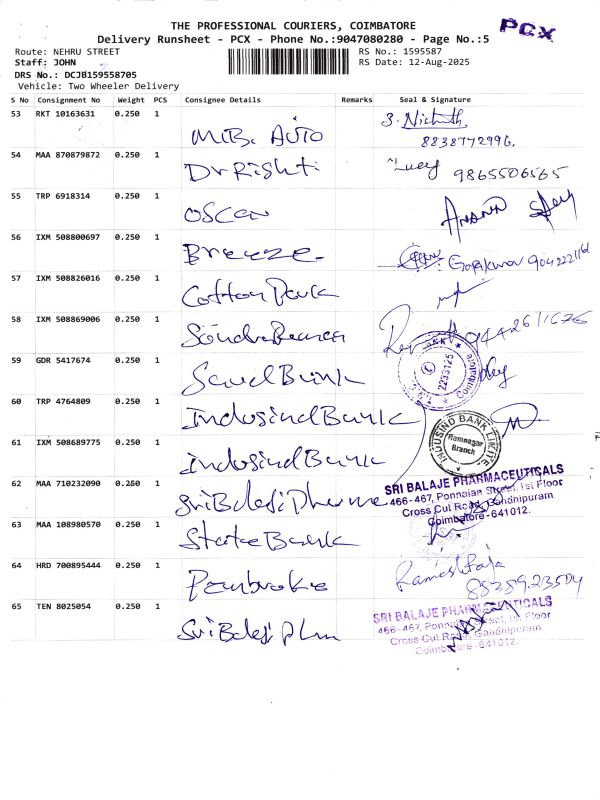 THE PROFESSIONAL COURIERS, COIMBATORE
PCX
Delivery Runsheet - PCX - Phone No.:9047080280 - Page No.:5
Route: NEHRU STREET
RS No.: 1595587
Staff: JOHN
RS Date: 12-Aug-2025
DRS No.: DCJB159558705
Vehicle: Two Wheeler Delivery
S No Consignment No Weight PCS Consignee Details Remarks Seal & Signature
53 RKT 10163631 0.250 1 M.B. AUTO
8838772996.
54 MAA 870879872 0.250 1 Dr Rishti Lucy 9865506565
55 TRP 6918314 0.250 1 OSCAR ANAND
56 IXM 508800697 0.250 1 Breeze
57 IXM 508826016 0.250 1 Cotton Park
58 IXM 508869006 0.250 1
59 GDR 5417674 0.250 1 Saud Bank
BANK
2233125
Coimbatore
60 TRP 4764809 0.250 1 Indusind Bank
INDUSIND BANK LIMITED
Ramnagar
Branch
61 IXM 508689775 0.250 1 Indusind Bank
62 MAA 710232090 0.250 1 Sri Balaji Pharma
SRI BALAJE PHARMACEUTICALS
466-467, Ponnaian Street, Ist Floor
Cross Cut Road, Gandhipuram
Coimbatore-641012.
63 MAA 108980570 0.250 1 State Bank
64 HRD 700895444 0.250 1 Pembroke Ramesh Raja
8838923504
65 TEN 8025054 0.250 1 Sri Balaji Phm
SRI BALAJE PHARMACEUTICALS
466-467, Ponnaian Street, Ist Floor
Cross Cut Road, Gandhipuram
Coimbatore-641012.